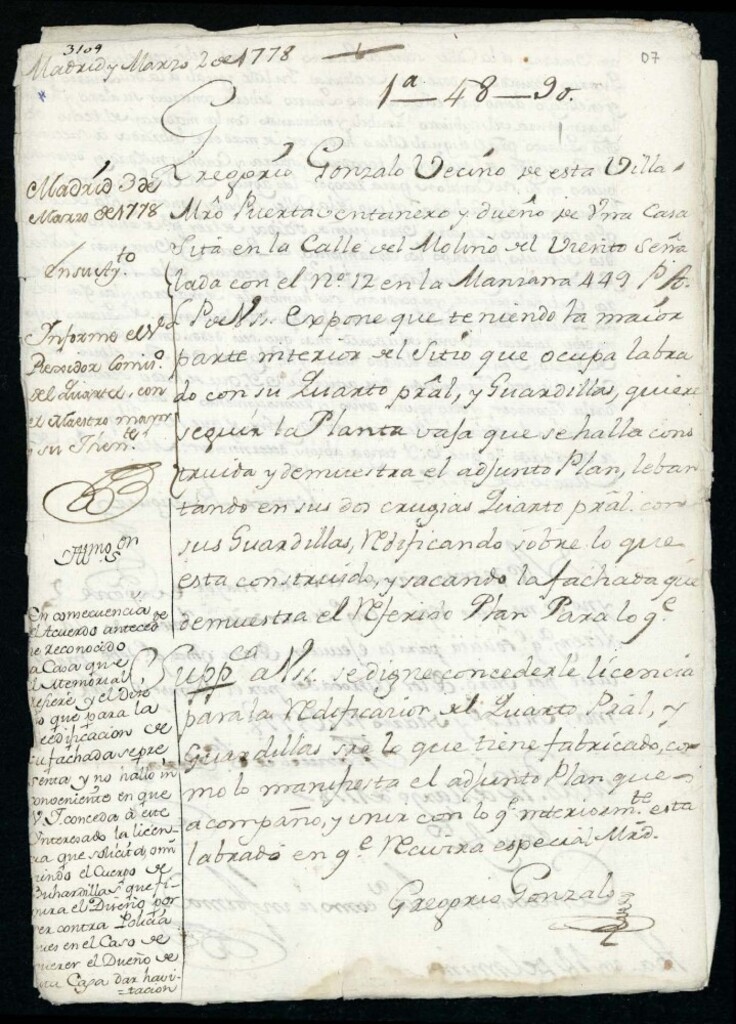 3109
Madrid y Marzo 2 de 1778
07
1ª 48 90.
Gregorio Gonzalo Vecino de esta Villa
Mrõ Puerta ventanero y dueño de Vna Casa
Sita en la Calle del Molino del Viento Seña
lada con el Nº 12 en la Manzana 449 P. A.
P. de V.s. expone que teniendo la maior
parte interior del Sitio que ocupa labra
do con su Quarto pral, y Guardillas, quiere
seguir la Planta vaja que se halla cons
truida y demuestra el adjunto Plan, leban
tando en sus dos crugias Quarto pral. con
sus Guardillas, redificando sobre lo que
esta construido, y sacando la fachada que
demuestra el referido Plan Para lo qe.
Suppca a V.s. se digne concederle licencia
para la redificazion del Quarto Pral, y
Guardillas sre lo que tiene fabricado, co
mo lo manifiesta el adjunto Plan que
acompaño, y unir con lo q.e interiormte esta
labrado en q.e recivira especial Mrd.
Gregorio Gonzalo
Madrid 3 de
Marzo de 1778
En su Ayto
Informe el Sr
Rexidor Comisº.
del Quartel, con
el Maestro mayor
y su Thente.
En consecuencia
del Acuerdo anteceden
te he reconocido
la Casa que
el Memorial
refiere y el Diseño
que para la
reedificacion de
su fachada se pre
senta y no hallo in
combeniente en que
V. I. conceda a este
Interesado la licen
cia que solicita, omi
tiendo el Cuerpo de
Buhardillas que fi
gura el Diseño por
ser contra Policia
pues en el Caso de
querer el Dueño de
esta Casa dar havi-
tacion